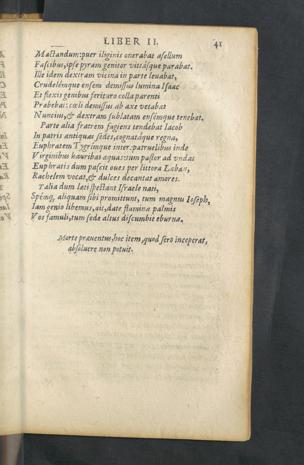 LIBER II. 41
Mactandum: puer ilignis onerabat asellum
Fascibus, ipse pyram genitor vittasque parabat.
Ille idem dextram vicina in parte leuabat,
Crudelémque ensem demissus lumina Isaac
Et flexis genibus feritura colla parenti
Præbebat: cœli demissus ab axe vetabat
Nuncius, & dextram sublatam ensémque tenebat.
Parte alia fratrem fugiens tendebat Iacob
In patris antiquas sedes, cognatáque regna,
Euphratem Tygrimque inter. patruelibus inde
Virginibus hauribat aquas: tum pastor ad vndas
Euphratis dum pascit oues per littora Laban,
Rachelem vocat, & dulces decantat amores.
Talia dum læti spectant Israele nati,
Spémq; aliquam sibi promittunt, tum magnus Ioseph,
Iam genio libemus, ait, date flumina palmis
Vos famuli, tum sede altus discumbit eburna.
Morte præuentus, hoc item, quod sero inceperat,
absoluere non potuit.